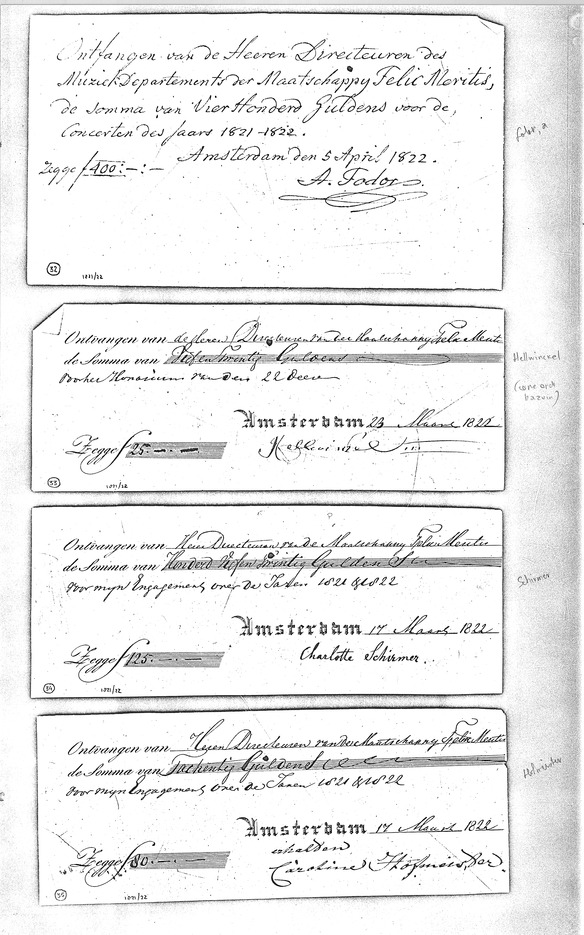 Ontfangen van de Heeren Directeuren des
Muziek Departements der Maatschappy Felix Meritis,
de Somma van Vier Honderd Guldens voor de,
Concerten des Jaars 1821-1822.
Amsterdam den 5 April 1822.
Zegge f 400:-:-
A. Fodor.
32
1821/22
Ontvangen van de Heren Directeuren van der Maatschappy Felix Merite
de Somma van Vyfentwintig Guldens
voor het Honorarium van den 22 Deer
Amsterdam 23 Maart 1822
Zegge f 25.-.-
33
1821/22
Hellwinckel
Ontvangen van Heeren Directeuren van de Maatschappy Felix Meritis
de Somma van Honderd Vyfentwintig Gulden
voor myn Engagement over de Jaren 1821 & 1822
Amsterdam 17 Maart 1822
Zegge f 125.-.-
Charlotte Schirmer.
34
1821/22
Schirmer
Ontvangen van Heren Directeuren van der Maatschappy Felix Meritis
de Somma van Tachentig Guldens
voor myn Engagement over de Jaren 1821 & 1822
Amsterdam 17 Maart 1822
erhalden
Zegge f 80.-.-
Caroline Hofmeister.
35
1821/22